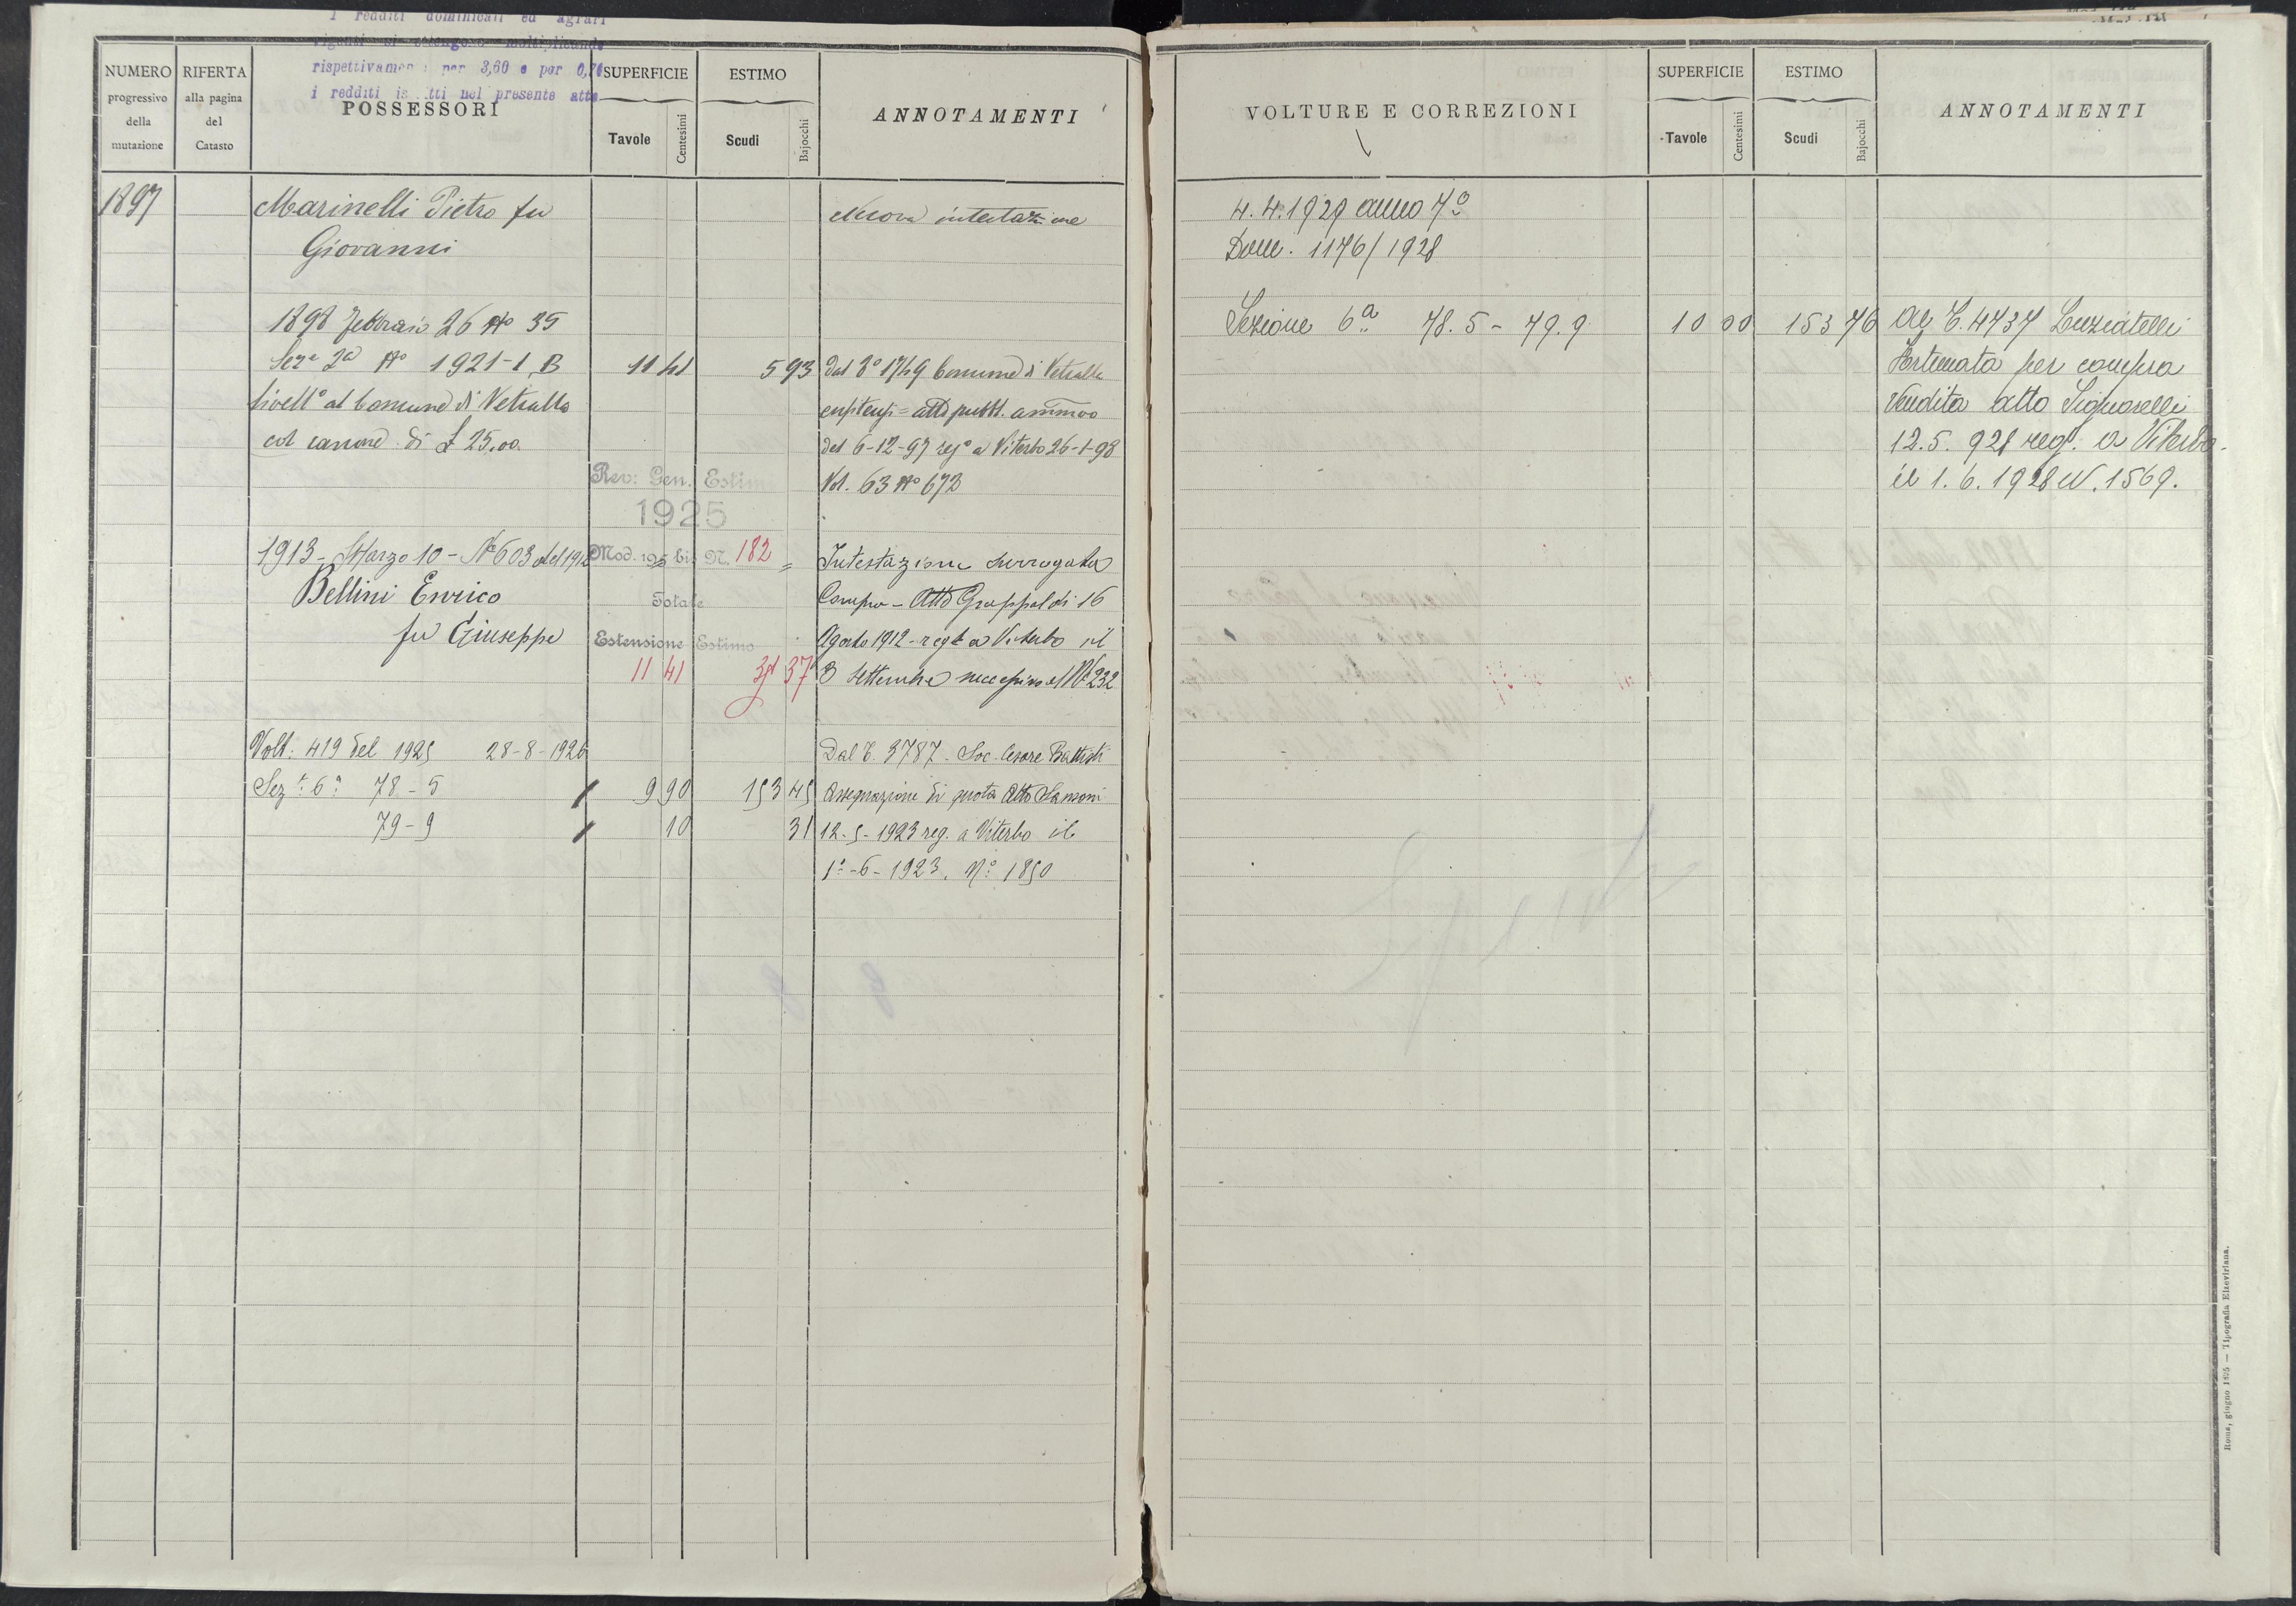 I redditi dominicali ed agrari
vigenti si ottengono moltiplicando
rispettivamen per 3,60 e per 0,70
i redditi is tti nel presente atto
NUMERO progressivo della mutazione
RIFERTA alla pagina del Catasto
POSSESSORI
SUPERFICIE
Tavole
Centesimi
ESTIMO
Scudi
Bajocchi
ANNOTAMENTI
1897
Marinelli Pietro fu
Giovanni
Nuova intestazione
1898 Febbraio 26 No 35
Sezе 2a No 1921-1 B 11 41 5 93 Dal 3° 1749 Comune di Vetralla
livello al Comune di Vetralla enfiteusi = atto pubbl. ammvo
col canone di £ 25,00 del 6-12-97 rego a Viterbo 26-1-98
Vol. 63 No 672
Rev: Gen. Estim
1925
Mod. 195 bis N. 182
Totale
Estensione Estimo
11 41 37
1913 - Marzo 10 - No 603 del 1912 Intestazione surrogata
Bellini Enrico Compra - Atto Grappaldi 16
fu Giuseppe Agosto 1912 - regt a Viterbo il
3 Settembre No 232
Volt: 419 del 1925 28-8-1926 Dal C. 3787. Soc. Cesare Battisti
Sez: 6a 78-5 9 90 153 45 Assegnazione di quota Atto Sansoni
79-9 10 31 12-5-1923 reg. a Viterbo il
1°-6-1923. No 1850
VOLTURE E CORREZIONI
SUPERFICIE
Tavole
Centesimi
ESTIMO
Scudi
Bajocchi
ANNOTAMENTI
4.4.1929 anno 7°
Dom. 1176/1928
Sezione 6a 78.5 - 79.9 10 00 153 76 Al C. 4737 Luziatelli
Fortunata per compra
vendita atto Signorelli
12.5.928 regt. a Viterbo
il 1.6.1928 N. 1569.
Roma, giugno 1895 — Tipografia Elzeviriana.